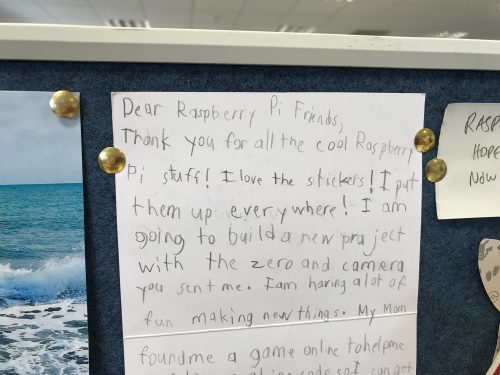 Dear Raspberry Pi Friends,
Thank you for all the cool Raspberry
Pi stuff! I love the stickers! I put
them up everywhere! I am
going to build a new project
with the zero and camera
you sent me. I am having a lot of
fun making new things. My Mom
found me a game online to help me
RASP
HOPE
NOW